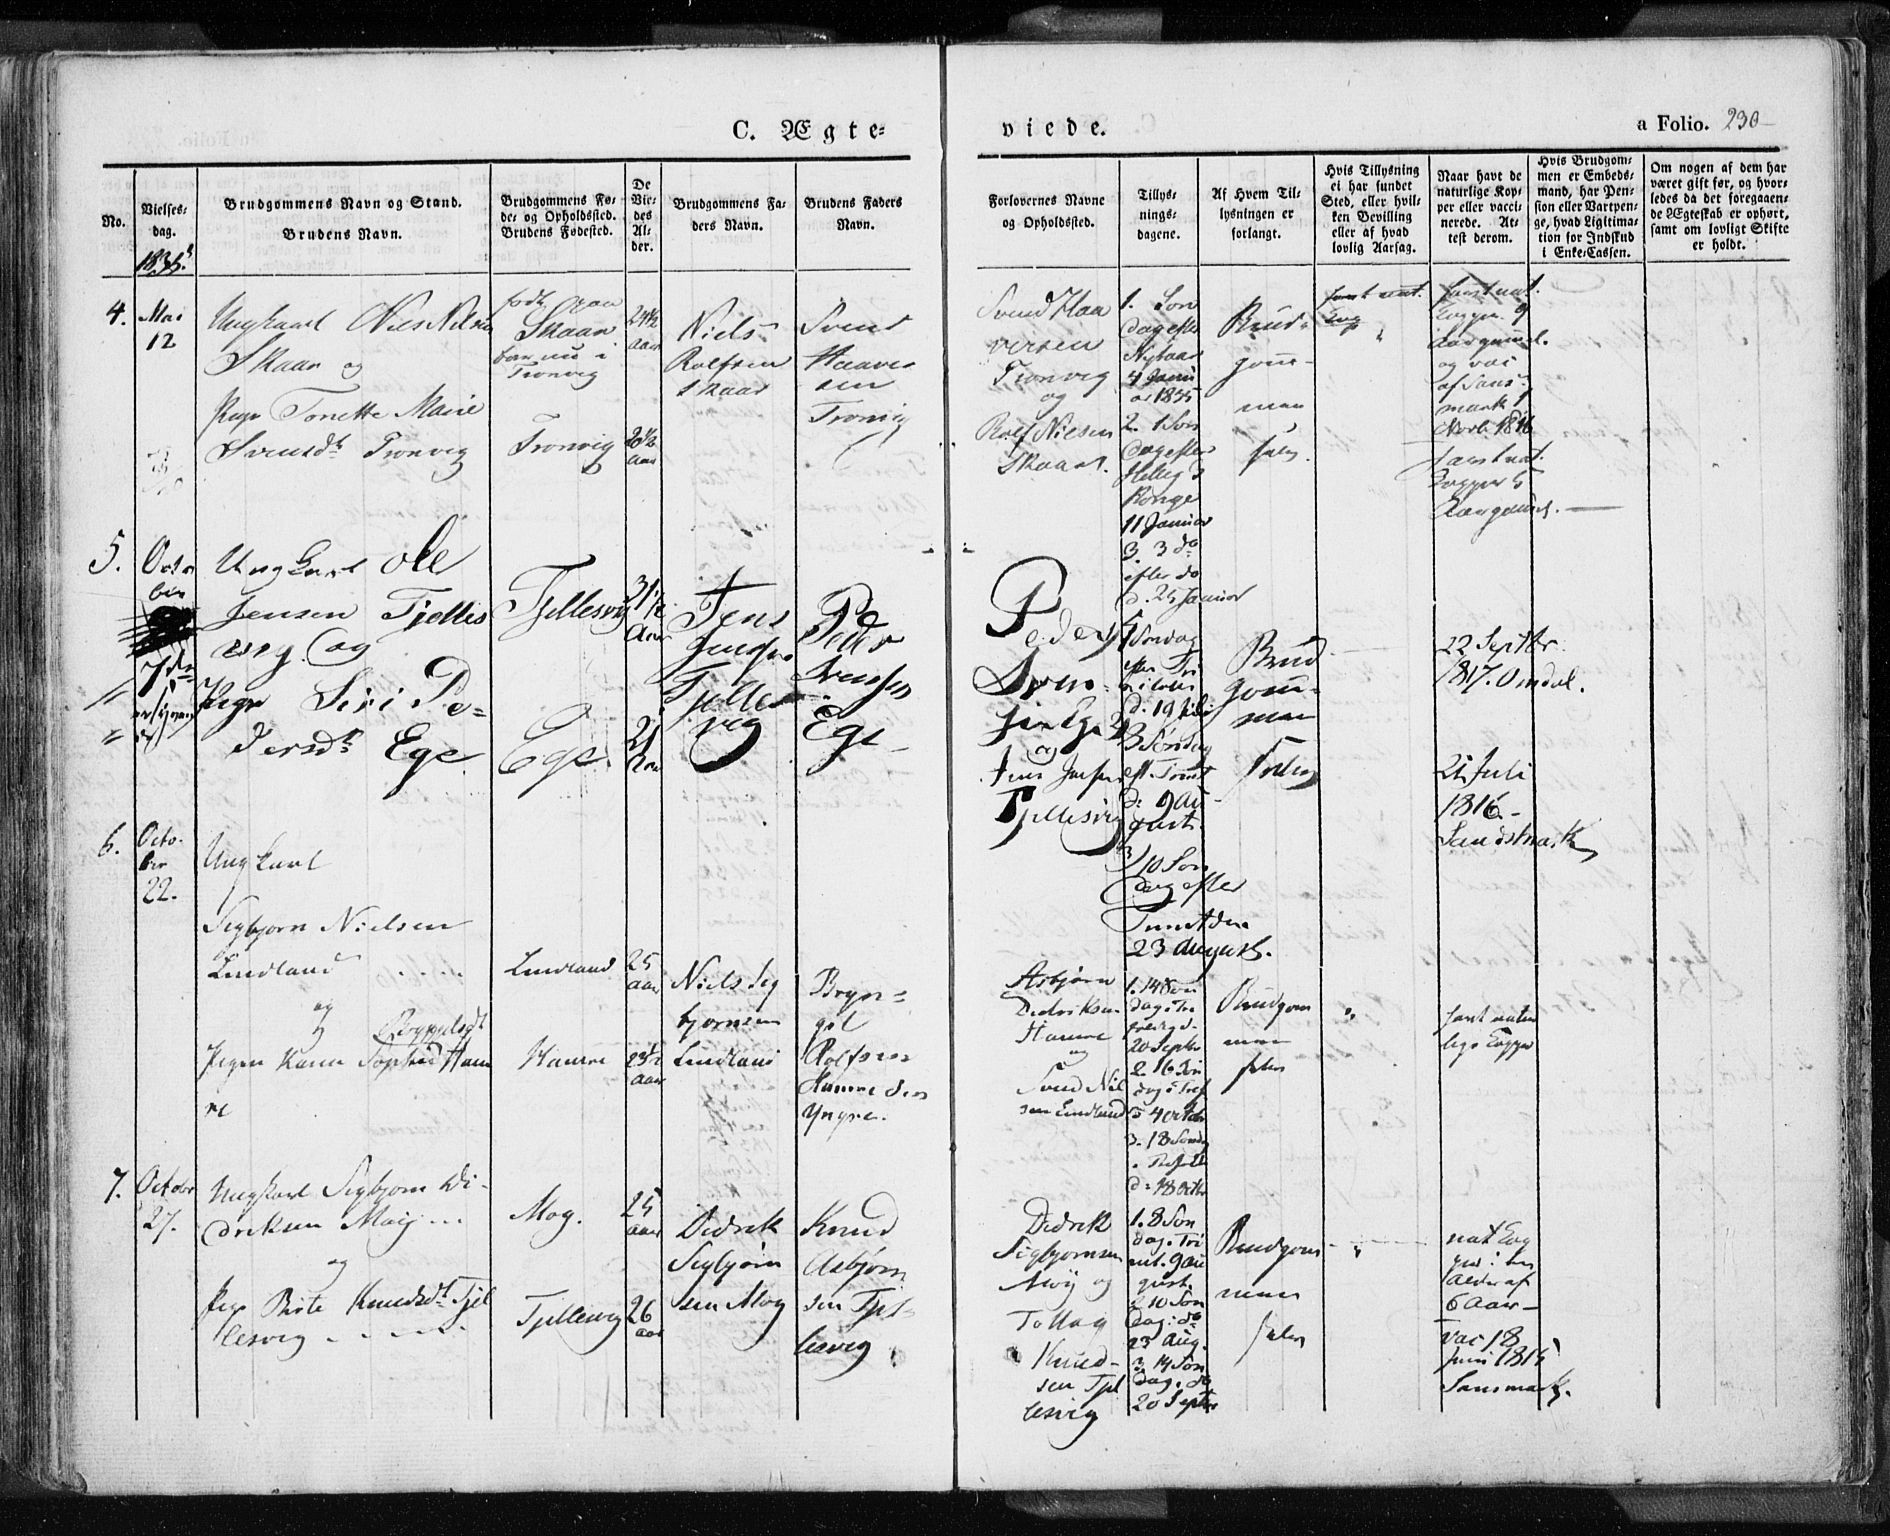 C. Ægte-
viede.
a Folio. 230
No.
Vielses-
dag.
1835.
Brudgommens Navn og Stand.
Brudens Navn.
Brudgommens Fø-
de- og Opholdssted.
Brudens Fødested.
De
Vie-
des
Al-
der.
Brudgommens Fa-
ders Navn.
Brudens Faders
Navn.
Forlovernes Navne
og Opholdssted.
Tillys-
nings-
dagene.
Af Hvem Til-
lysningen er
forlangt.
Hvis Tillysning
ei har fundet
Sted, eller hvil-
ken Bevilling
eller af hvad
lovlig Aarsag.
Naar havt de
naturlige Kop-
per eller vacci-
nerede. At-
test derom.
Hvis Brudgom-
men er Embeds-
mand, har Pen-
sion eller Vartpen-
ge, hvad Ligitima-
tion for Indskud
i Enke-Cassen.
Om nogen af dem har
været gift før, og hvor-
ledes da det foregaaen-
de Ægteskab er ophørt,
samt om lovligt Skifte
er holdt.
4.
Mai
12
Ungkarl Niels Nilsen
Skaar og
Pige Tonette Marie
Svensdt Tronvig
Skaar
nu i
Tronvig
Tronvig
24½
aar
20½
aar
Niels
Rolfsen
Skaar
Svend
Haaver
sen
Tronvig
Svend Haa
versen
Tronvig
og
Rolf Nielsen
Skaar.
1. Søn
dag efter
Nytaar
4 Janu
ar 1835
2. 1 Søn
dag efter
Hellig 3
Konge
11 Januar
3. 3 do
efter do
d. 25 Januar
Brud-
gom-
men
selv
havt nat.
Kop
havt nat.
Kopper 9
Aar gammel.
og vac
af Sans-
mark
1816
havt nat.
Kopper 5
Aar gammel.
5.
Octo
ber
7de
Ungkarl Ole
Jensen Tjellis
vig og
Pige Siri Pe-
dersdt Ege
Tjellesvig
Ege
31½
Aar
21
Aar
Jens
Jensen
Tjelles
vig
Peder
Svensen
Ege
Peder
Sven-
sen Ege
og
Jens Jensen
Tjellesvig
Søndag
efter Tri
nitatis
d. 19 Juli
Søndag
eft. Trinit
d. 9 Au-
gust.
3) 10 Søn
dag efter
Trinit den
23 August.
Brud
gom-
men
selv
22 Septbr.
1817. Omdal.
21 Juli
1816.
Sandsmark
6.
Octo-
ber
22.
Ungkarl
Sigbjørn Nielsen
Lindland
og
Bryngelsdt
Pigen Karen Sophie Ham
re
Lindland
Hamre
25
aar
23½
aar
Niels Sig
bjørnsen
Lindland
Bryn-
gel
Rolfsen
Hamre den
Yngre.
Asbjørn
Didriksen
Hamre
og
Svend Nil
sen Lindland
1. 14 Søn
dag i Tre
20 Septbr
2. 16 Søn
dag i Tref
d 4 October
3. 18 Søndag
d. 18 Octbr
Brudgom
men
selv
havt natur
lige Kopper
7.
October
27.
Ungkarl Sigbjørn Di-
driksen Moig
og
Pige Birte Knudsdt Tjel
lesvig
Moy.
Tjellesvig
25
aar
26
aar
Didrik
Sigbjørn
sen Moy
Knud
Asbjørn
sen Tjel-
lesvig
Didrik
Sigbjørnsen
Møy og
Tollag
Knud-
sen Tjel
lesvig
1. 8 Søn
dag. Tri
nit. 9 Au
gust.
2 10 Søn
dag. do
23 Aug.
3. 14 Søn
dag. do
20 Septbr
Brudgom
men
selv
nat Kop
per i en
Alder af
6 Aar
vac 18
Juni 1815
Sansmark.